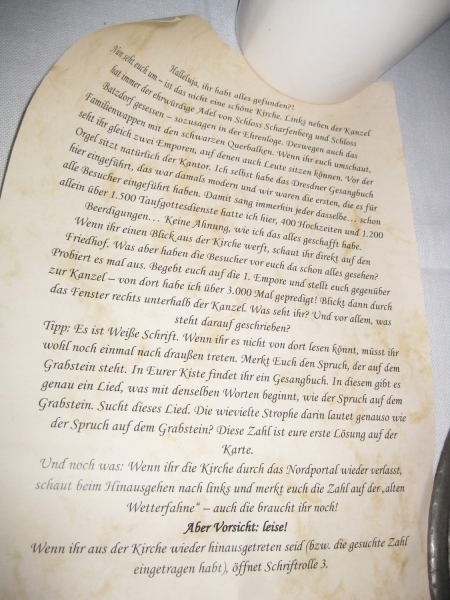 Halleluja, ihr habt alles gefunden?!
Nun seht euch um – ist das nicht eine schöne Kirche. Links neben der Kanzel
hat immer der ehrwürdige Adel von Schloss Scharfenberg und Schloss
Batzdorf gesessen – sozusagen in der Ehrenloge. Deswegen auch das
Familienwappen mit den schwarzen Querbalken. Wenn ihr euch umschaut,
seht ihr gleich zwei Emporen, auf denen auch Leute sitzen können. Vor der
Orgel sitzt natürlich der Kantor. Ich selbst habe das Dresdner Gesangbuch
hier eingeführt, das war damals modern und wir waren die ersten, die es für
alle Besucher eingeführt haben. Damit sang immerhin jeder dasselbe… schon
allein über 1.500 Taufgottesdienste hatte ich hier, 400 Hochzeiten und 1.200
Beerdigungen… Keine Ahnung, wie ich das alles geschafft habe.
Wenn ihr einen Blick aus der Kirche werft, schaut ihr direkt auf den
Friedhof. Was aber haben die Besucher vor euch da schon alles gesehen?
Probiert es mal aus. Begebt euch auf die 1. Empore und stellt euch gegenüber
zur Kanzel – von dort habe ich über 3.000 Mal gepredigt! Blickt dann durch
das Fenster rechts unterhalb der Kanzel. Was seht ihr? Und vor allem, was
steht darauf geschrieben?
Tipp: Es ist Weiße Schrift. Wenn ihr es nicht von dort lesen könnt, müsst ihr
wohl noch einmal nach draußen treten. Merkt Euch den Spruch, der auf dem
Grabstein steht. In Eurer Kiste findet ihr ein Gesangbuch. In diesem gibt es
genau ein Lied, was mit denselben Worten beginnt, wie der Spruch auf dem
Grabstein. Sucht dieses Lied. Die wievielte Strophe darin lautet genauso wie
der Spruch auf dem Grabstein? Diese Zahl ist eure erste Lösung auf der
Karte.
Und noch was: Wenn ihr die Kirche durch das Nordportal wieder verlasst,
schaut beim Hinausgehen nach links und merkt euch die Zahl auf der „alten
Wetterfahne“ – auch die braucht ihr noch!
Aber Vorsicht: leise!
Wenn ihr aus der Kirche wieder hinausgetreten seid (bzw. die gesuchte Zahl
eingetragen habt), öffnet Schriftrolle 3.